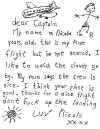 dear Captain
My name is Nicola im 8
years old, this is my first
flight but im not scared. I
like to watch the clouds go
by. My mum says the crew is
nice. I think your plane is
good. thanks for a nice flight
dont fuck up the landing
LUV Nicola
xxxx